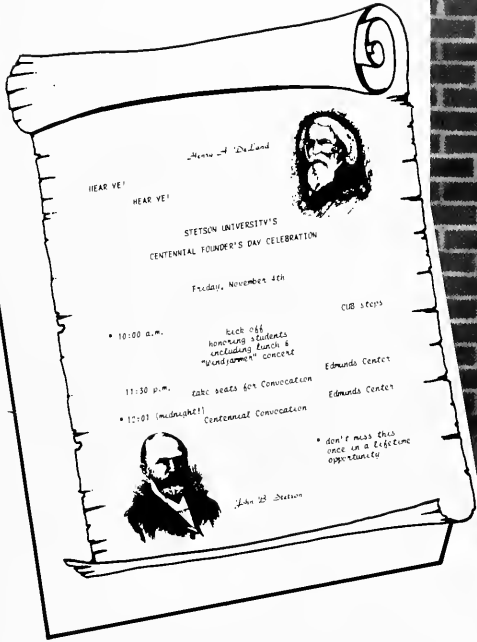 Henry A. DeLand
HEAR YE!
HEAR YE!
STETSON UNIVERSITY'S
CENTENNIAL FOUNDER'S DAY CELEBRATION
Friday, November 4th
CUB steps
* 10:00 a.m. kick off
honoring students
including lunch &
"Windjammer" concert
Edmunds Center
11:30 p.m. take seats for Convocation
Edmunds Center
* 12:01 (midnight!)
Centennial Convocation
* don't miss this
once in a lifetime
opportunity
John B. Stetson